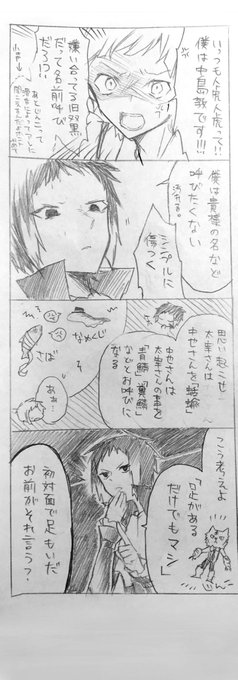 いっつも人虎人虎って!!
僕は中島敦です!!!
嫌い合ってる旧双黒
だって名前呼び
だろ!?
僕は貴様の名など
呼びたくない
汚れる。
シンプルに
傷つく
思い起こせ…
太宰さんは
中也さんを「蛞蝓」
中也さんは
太宰さんの事を
「青鯖」
などとお呼びに
なる
なめくじ
さば
ああ!
こう考えよ
「足がある
だけでもマシ」
初対面で足もいだ
お前がそれ言う?